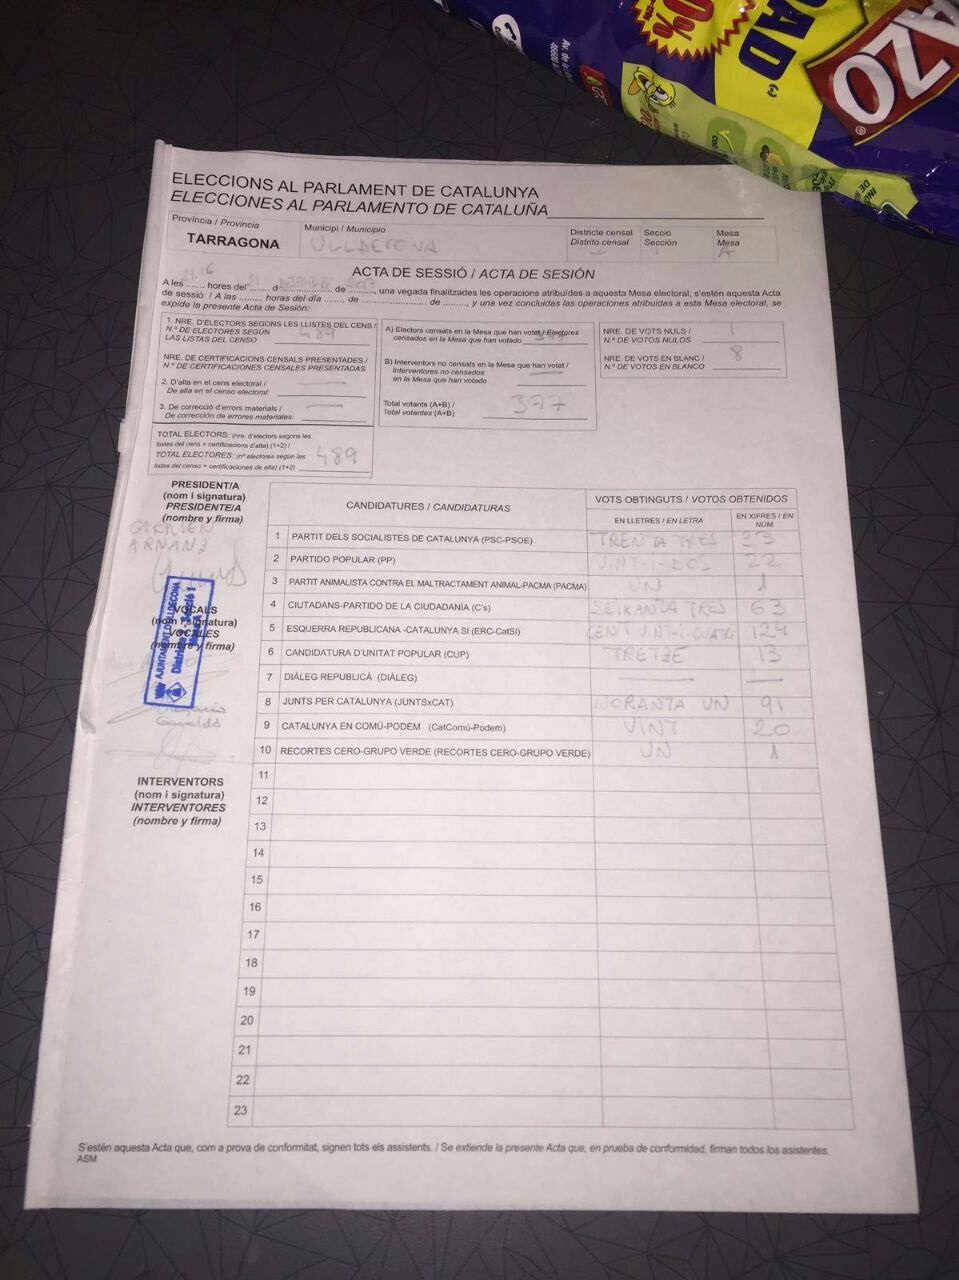 AZO
®
DAD
0%
Av. de
46600 A
ELECCIONS AL PARLAMENT DE CATALUNYA
ELECCIONES AL PARLAMENTO DE CATALUÑA
Província / Provincia
TARRAGONA
Municipi / Municipio
ULLDECONA
Districte censal
Distrito censal
Secció
Sección
Mesa
Mesa
A
ACTA DE SESSIÓ / ACTA DE SESIÓN
A les 21,16 hores del 21 d de 2017, una vegada finalitzades les operacions atribuïdes a aquesta Mesa electoral, s'estén aquesta Acta
de sessió: / A las ......... horas del día ....... de ........................ de ........, y una vez concluidas las operaciones atribuidas a esta Mesa electoral, se
expide la presente Acta de Sesión:
1. NRE. D'ELECTORS SEGONS LES LLISTES DEL CENS /
N.º DE ELECTORES SEGÚN
LAS LISTAS DEL CENSO 489
NRE. DE CERTIFICACIONS CENSALS PRESENTADES /
N.º DE CERTIFICACIONES CENSALES PRESENTADAS
2. D'alta en el cens electoral /
De alta en el censo electoral:
3. De correcció d'errors materials /
De corrección de errores materiales:
TOTAL ELECTORS: (nre. d'electors segons les
llistes del cens + certificacions d'alta) (1+2) /
TOTAL ELECTORES: (nº electores según las
listas del censo + certificaciones de alta) (1+2) 489
A) Electors censats en la Mesa que han votat / Electores
censados en la Mesa que han votado 377
B) Interventors no censats en la Mesa que han votat /
Interventores no censados
en la Mesa que han votado
Total votants (A+B) /
Total votantes (A+B) 377
NRE. DE VOTS NULS /
N.º DE VOTOS NULOS 1
NRE. DE VOTS EN BLANC /
N.º DE VOTOS EN BLANCO 8
PRESIDENT/A
(nom i signatura)
PRESIDENTE/A
(nombre y firma)
CARMEN
ARNANZ
VOCALS
(nom i signatura)
VOCALES
(nombre y firma)
AJUNTAMENT D'ULLDECONA
INTERVENTORS
(nom i signatura)
INTERVENTORES
(nombre y firma)
CANDIDATURES / CANDIDATURAS
VOTS OBTINGUTS / VOTOS OBTENIDOS
EN LLETRES / EN LETRA
EN XIFRES / EN
NÚM.
1 PARTIT DELS SOCIALISTES DE CATALUNYA (PSC-PSOE) TRENTA TRES 33
2 PARTIDO POPULAR (PP) VINT-I-DOS 22
3 PARTIT ANIMALISTA CONTRA EL MALTRACTAMENT ANIMAL-PACMA (PACMA) UN 1
4 CIUTADANS-PARTIDO DE LA CIUDADANÍA (C's) SEIXANTA TRES 63
5 ESQUERRA REPUBLICANA -CATALUNYA SÍ (ERC-CatSí) CENT VINT-I-QUATRE 124
6 CANDIDATURA D'UNITAT POPULAR (CUP) TRETZE 13
7 DIÀLEG REPUBLICÀ (DIÀLEG)
8 JUNTS PER CATALUNYA (JUNTSxCAT) NORANTA UN 91
9 CATALUNYA EN COMÚ-PODEM (CatComú-Podem) VINT 20
10 RECORTES CERO-GRUPO VERDE (RECORTES CERO-GRUPO VERDE) UN 1
11
12
13
14
15
16
17
18
19
20
21
22
23
S'estén aquesta Acta que, com a prova de conformitat, signen tots els assistents. / Se extiende la presente Acta que, en prueba de conformidad, firman todos los asistentes.
ASM